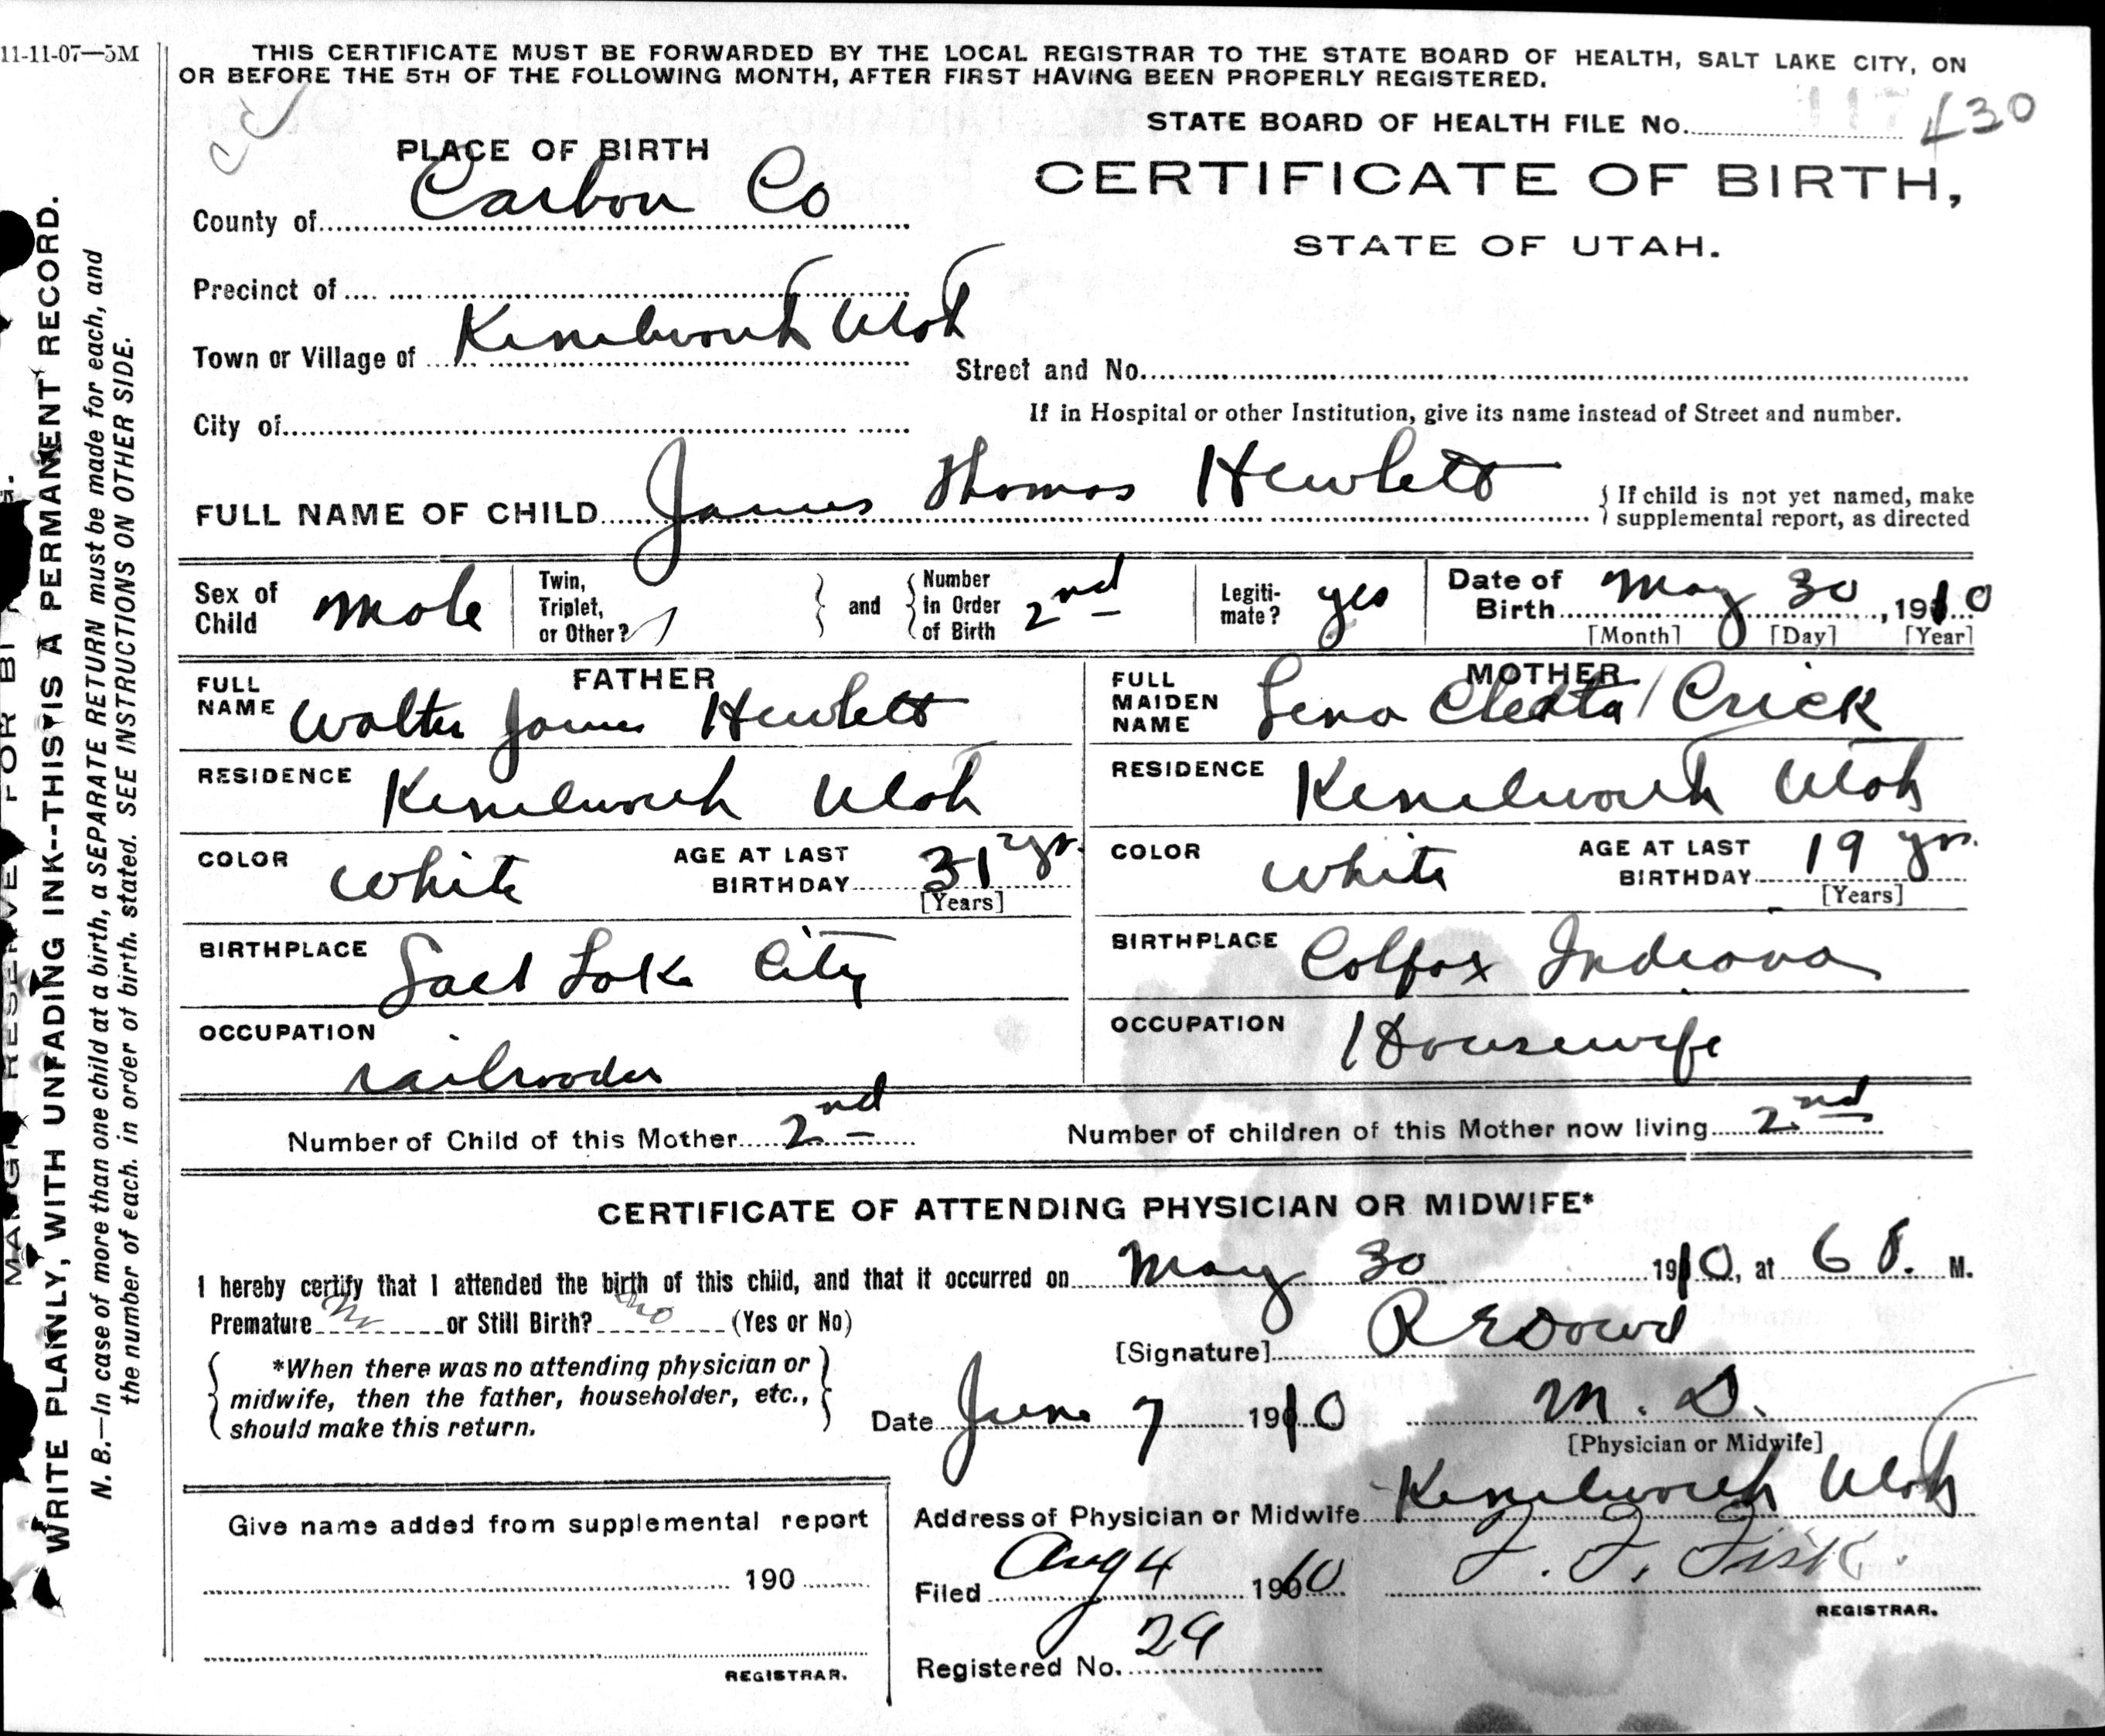 11-11-07—5M
THIS CERTIFICATE MUST BE FORWARDED BY THE LOCAL REGISTRAR TO THE STATE BOARD OF HEALTH, SALT LAKE CITY, ON
OR BEFORE THE 5TH OF THE FOLLOWING MONTH, AFTER FIRST HAVING BEEN PROPERLY REGISTERED.
STATE BOARD OF HEALTH FILE No. 430
CERTIFICATE OF BIRTH,
STATE OF UTAH.
PLACE OF BIRTH
County of Carbon Co
Precinct of
Town or Village of Kenilworth Utah
Street and No.
City of
If in Hospital or other Institution, give its name instead of Street and number.
FULL NAME OF CHILD James Thomas Hewlett
If child is not yet named, make
supplemental report, as directed
Sex of Child male
Twin, Triplet, or Other?
and
Number in Order of Birth 2nd
Legitimate? yes
Date of Birth May 30, 1910
[Month] [Day] [Year]
FATHER
FULL NAME Walter James Hewlett
RESIDENCE Kenilworth Utah
COLOR White
AGE AT LAST BIRTHDAY 31 yr.
[Years]
BIRTHPLACE Salt Lake City
OCCUPATION railroader
MOTHER
FULL MAIDEN NAME Lena Cleata Crick
RESIDENCE Kenilworth Utah
COLOR White
AGE AT LAST BIRTHDAY 19 yrs.
[Years]
BIRTHPLACE Colfax Indiana
OCCUPATION Housewife
Number of Child of this Mother 2nd
Number of children of this Mother now living 2nd
CERTIFICATE OF ATTENDING PHYSICIAN OR MIDWIFE*
I hereby certify that I attended the birth of this child, and that it occurred on May 30 1910, at 6 P. M.
Premature No or Still Birth? no (Yes or No)
*When there was no attending physician or
midwife, then the father, householder, etc.,
should make this return.
[Signature] R E Dowd
Date June 7 1910
M. D.
[Physician or Midwife]
Address of Physician or Midwife Kenilworth Utah
Filed Aug 4 1910
F. F. Fisk.
REGISTRAR.
Registered No. 29
Give name added from supplemental report
190
REGISTRAR.
WRITE PLAINLY, WITH UNFADING INK--THIS IS A PERMANENT RECORD.
N. B.—In case of more than one child at a birth, a SEPARATE RETURN must be made for each, and
the number of each, in order of birth, stated. SEE INSTRUCTIONS ON OTHER SIDE.